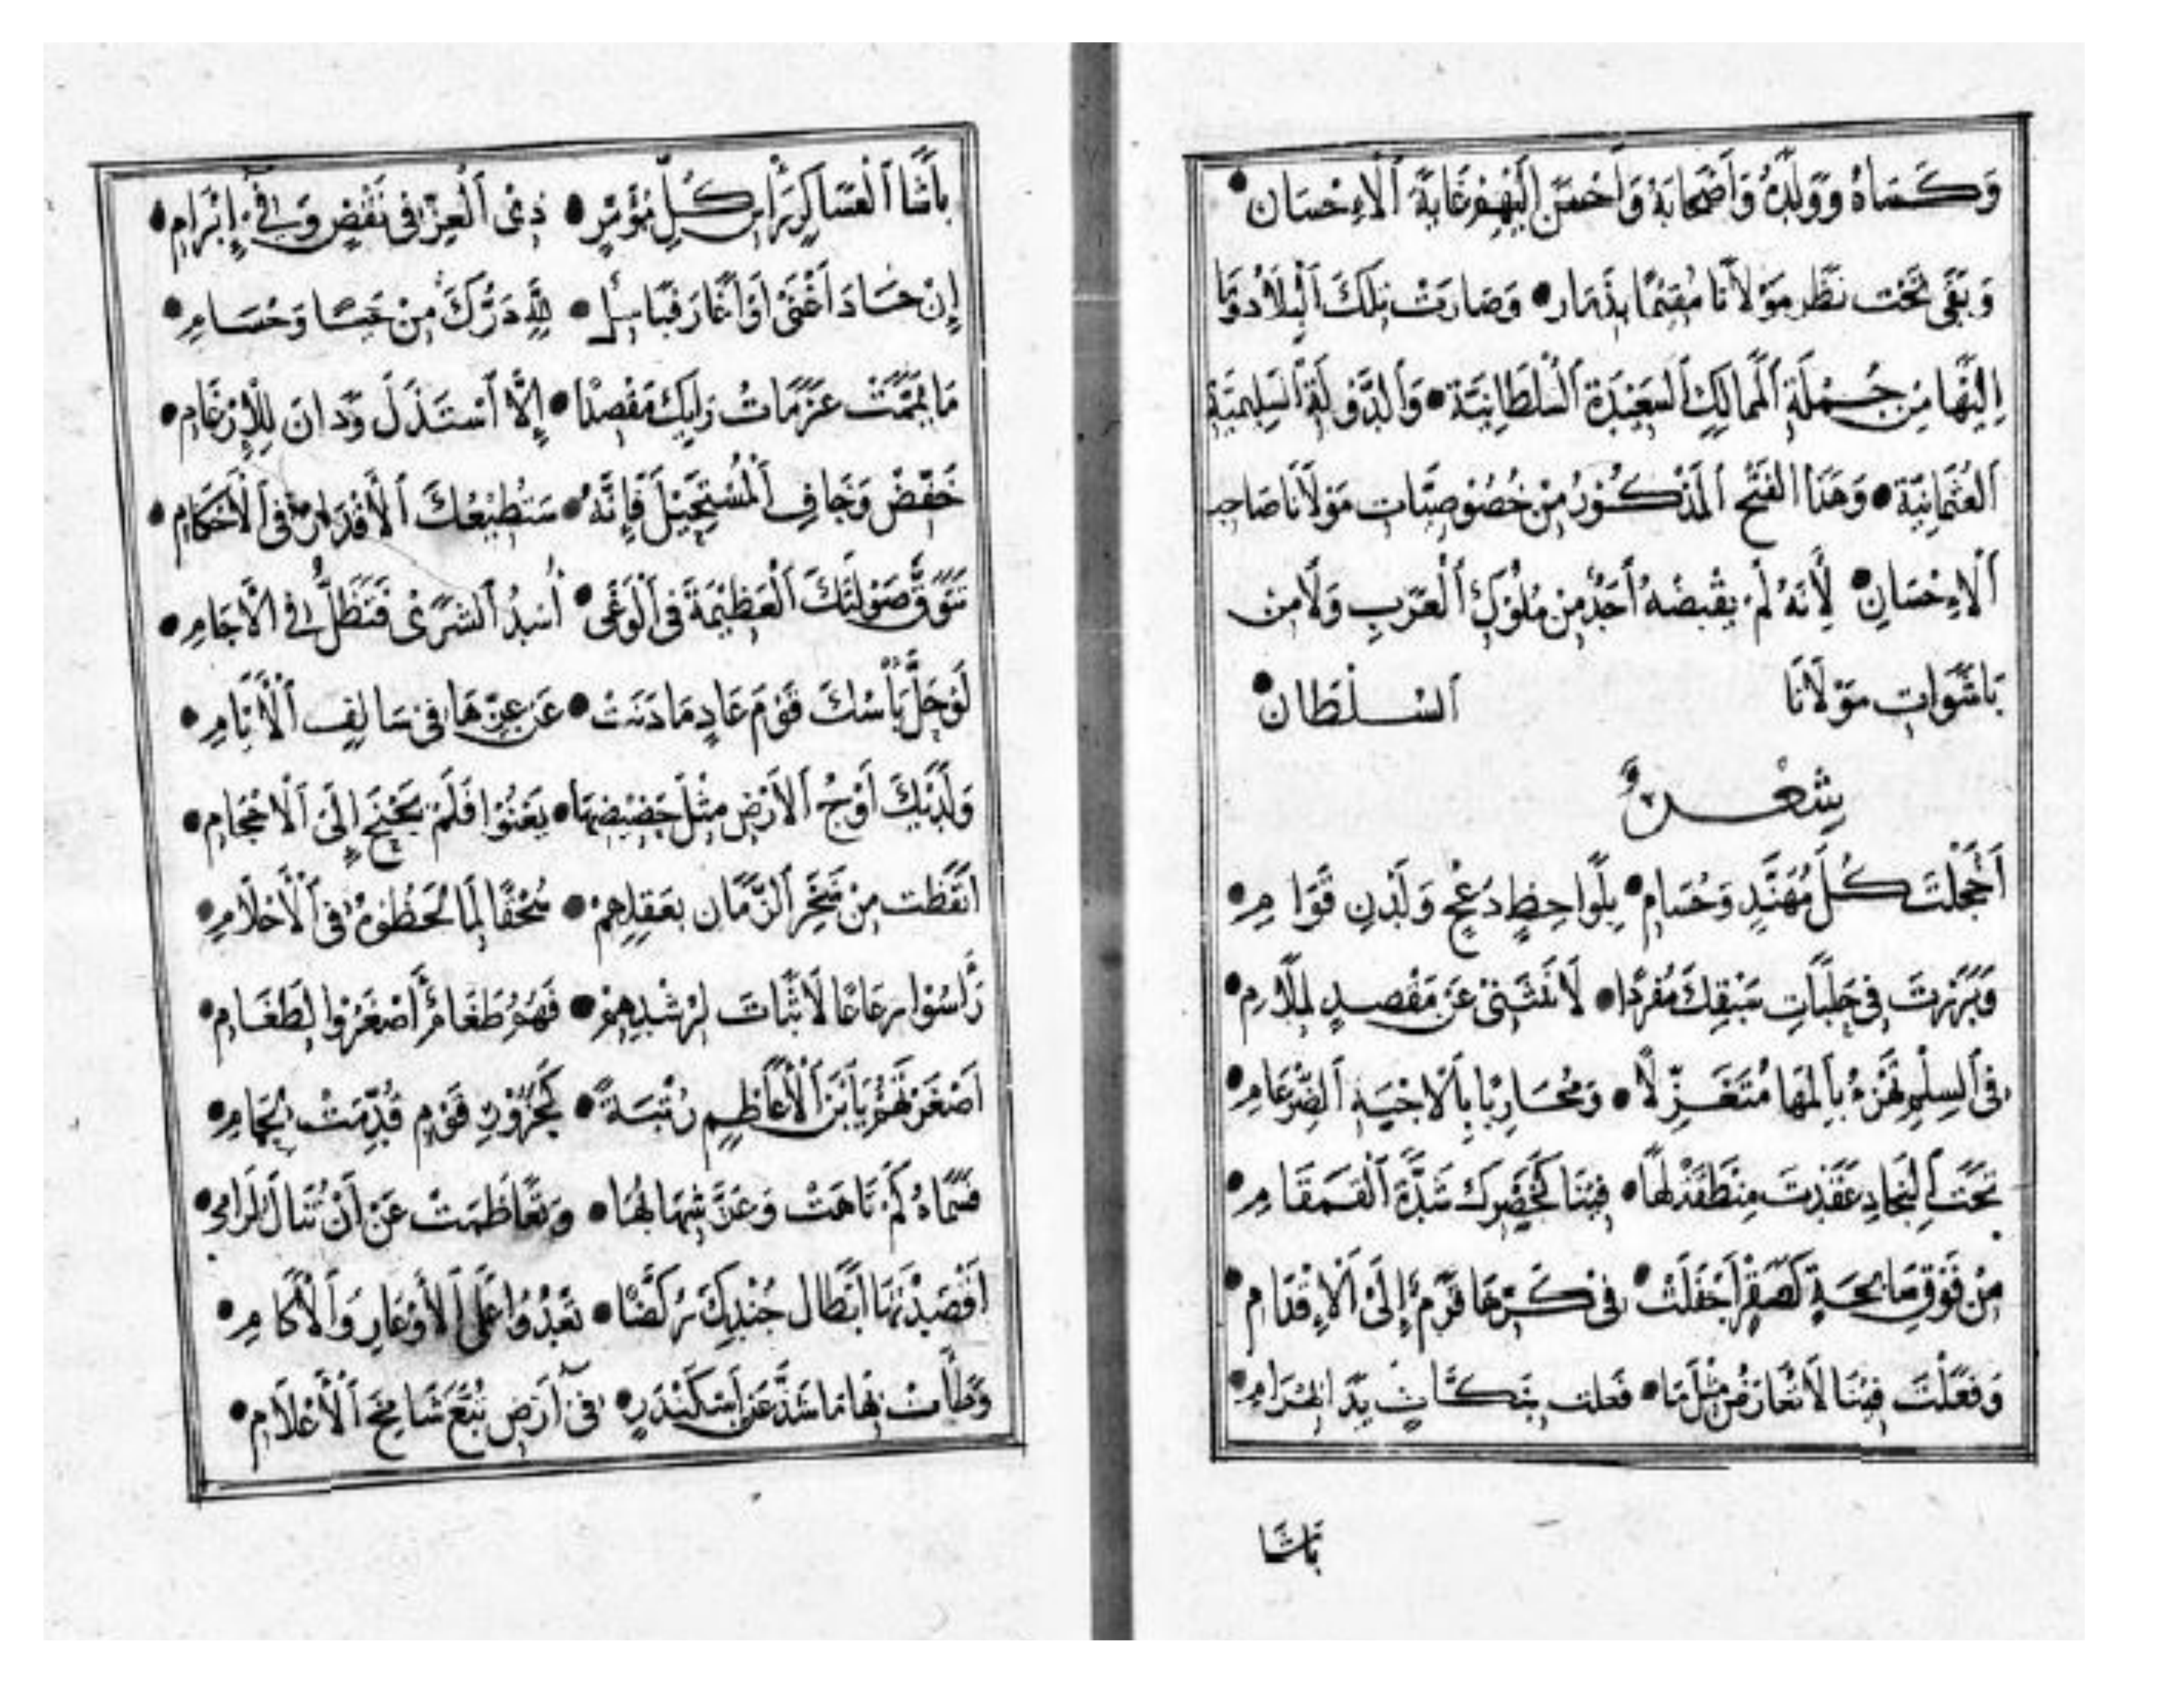 وَكَسَاهُ وَوَلَدِهُ وَأَصْحَابَهُ وَأَحْسَنَ إِلَيْهِمْ غَايَةَ ٱلْاِحْسَان
وَبَقَى تَحْت نَظَر مَوْلَانَا مُقِيْمًا بِذَمَار وَصَارَتْ تِلْكَ ٱلْبِلَادُ وَمَا
إِلَيْهَا مِن جُمْلَةِ ٱلْمَمَالِكِ ٱلسَّعِيْدَةِ ٱلسُّلْطَانِيَّة وَٱلدَّوْلَةِ ٱلسَّلِيمِيَّة
ٱلْعُثْمَانِيَّة وَهَذَا الْفَتْح ٱلْمَذْكُوْرُ مِنْ خُصُوْصِيَّات مَوْلَانَا صَاحِب
ٱلْاِحْسَانِ لِأَنَّهُ لَمْ يَقْبِضْهُ أَحَدٌ مِنْ مُلُوْكِ ٱلْعَرَبِ وَلَا مِن
بَاشَوَاتِ مَوْلَانَا ٱلسُّلْطَان
شِعْرٌ
أَخْجَلْتَ كُلَّ مُهَنَّدٍ وَحُسَامِ بِلَوَاحِظٍ دُعْجٍ وَلَدْنِ قَوَامِ
وَبَرَزْتَ فِي حَلَبَاتِ سَبْقِكَ مُفْرَدًا لَا تَنْثَنِي عَنْ مَقْصِدٍ لِمَلَامِ
فِي ٱلسِّلْمِ تَهْزَءُ بِٱلْمَهَا مُتَغَزِّلًا وَمُحَارِبًا بِالْاخْيَةِ ٱلضِّرْغَامِ
تَحْتَ ٱلنِّجَادِ عَقَدْتَ مِنْطَقَةً لَهَا فِينَا كَخَصْرِكَ شَدَّةَ ٱلْقَمَقَامِ
مِنْ فَوْقِ سَابِحَةٍ كَصَقْرٍ أَجْفَلَتْ فِي كَرِّهَا قَرْمٌ إِلَى ٱلْاِقْدَامِ
وَفَعَلْتَ فِينَا لَا تُعَارَضُ مِثْلَ مَا فَعَلَت بِنَكَّاثٍ يَدَا بَهْرَامِ
بَاشَا
بَاشَا ٱلْعَسَاكِرِ تَرَابْنِ كُلِّ مُؤَمَّرٍ ذِي ٱلْعِزِّ فِي نَقْضٍ وَفِي إِبْرَامِ
إِنْ جَادَ أَغْنَى أَوْ أَغَارَ فَبَاسِلٌ لِلَّهِ دَرُّكَ مِنْ حَيَا وَحُسَامِ
مَا يَمَّمَتْ عَزَمَاتُ رَايِكَ مَقْصِدًا إِلَّا ٱسْتَذَلَّ وَدَانَ لِلْإِرْغَامِ
خَفِّضْ وَجَافِ ٱلْمُسْتَحِيْلَ فَإِنَّهُ سَتُطِيْعُكَ ٱلْأَقْدَارُ فِي ٱلْأَحْكَامِ
تَتَوَقَّ صَوْلَتَكَ ٱلْعَظِيْمَةَ فِي ٱلْوَغَى أُسْدُ ٱلشَّرَى فَتَظَلُّ فِي ٱلْآجَامِ
لَوْ حَلَّ بَأْسُكَ قَوْمَ عَادٍ مَا دَنَتْ عَن عِزِّهَا فِي سَالِفِ ٱلْأَيَّامِ
وَلَدَيْكَ أَوْجُ ٱلْأَرْضِ مِثْلُ حَضِيْضِهَا يَعْنُوا فَلَمْ يَجْنَحْ إِلَى ٱلْاِحْجَامِ
اتَّعَظَت مِنْ فَخْرِ ٱلزَّمَانِ بِعَقْلِهِمْ سُحْقًا لِمَا لَحَظُوْهُ فِي ٱلْأَحْلَامِ
رَأَسُوا رَعَاعًا لَا ثَبَاتَ لِرُشْدِهِمْ فَهُمُ طَغَامٌ أَصْغَرُوا لِطَغَامِ
أَصْغَرْتَهُمْ يَا ٱبْنَ ٱلْأَعَاظِمِ رُتْبَةً كَجَزُوْرِ قَوْمٍ قُدِّمَتْ لِحِمَامِ
فَسَمَاهُ كَمْ تَاهَتْ وَعَزَّ شِبْهًا لَهَا وَتَعَاظَمَتْ عَنْ أَنْ تُنَالَ لِرَامِ
أَقْصَدْتَهَا أَبْطَالَ جُنْدِكَ رُكَّضًا تَعْدُوْا عَلَى ٱلْأَوْعَارِ وَٱلْآكَامِ
وَطَأَتْ بِهَا مَا شَذَّ عَنْ إِسْكَنْدَرٍ فِي أَرْضِ تُبَّعَ شَامِخِ ٱلْأَعْلَامِ